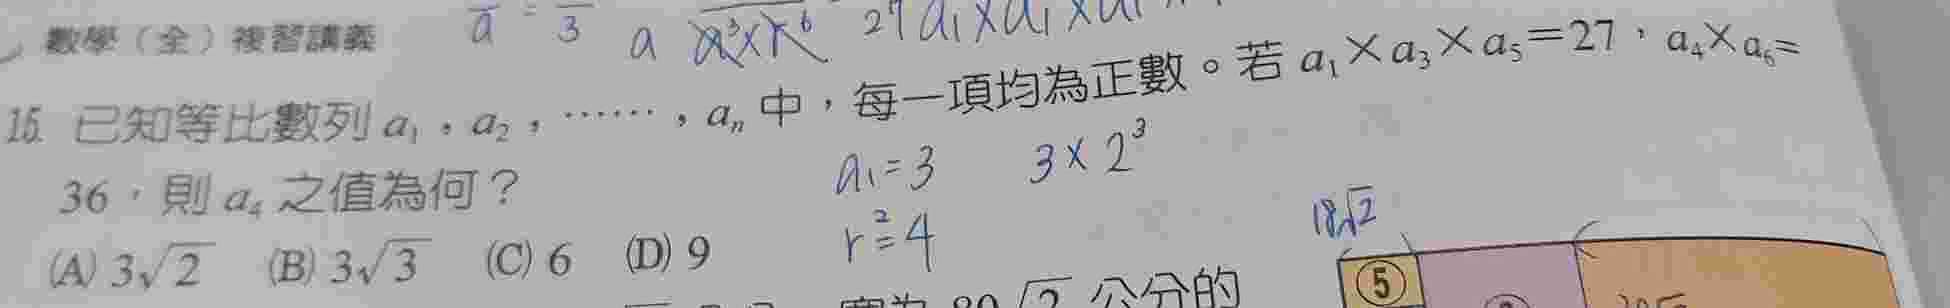 數學（全）複習講義
a = 3 a a³×r⁶ 27 a₁×a₁×a₁
15. 已知等比數列 a₁，a₂，……，aₙ 中，每一項均為正數。若 a₁×a₃×a₅=27，a₄×a₆=
36，則 a₄ 之值為何？
a₁=3 3×2³
r²=4
(A) 3√2 (B) 3√3 (C) 6 (D) 9
18√2
⑤
公分的